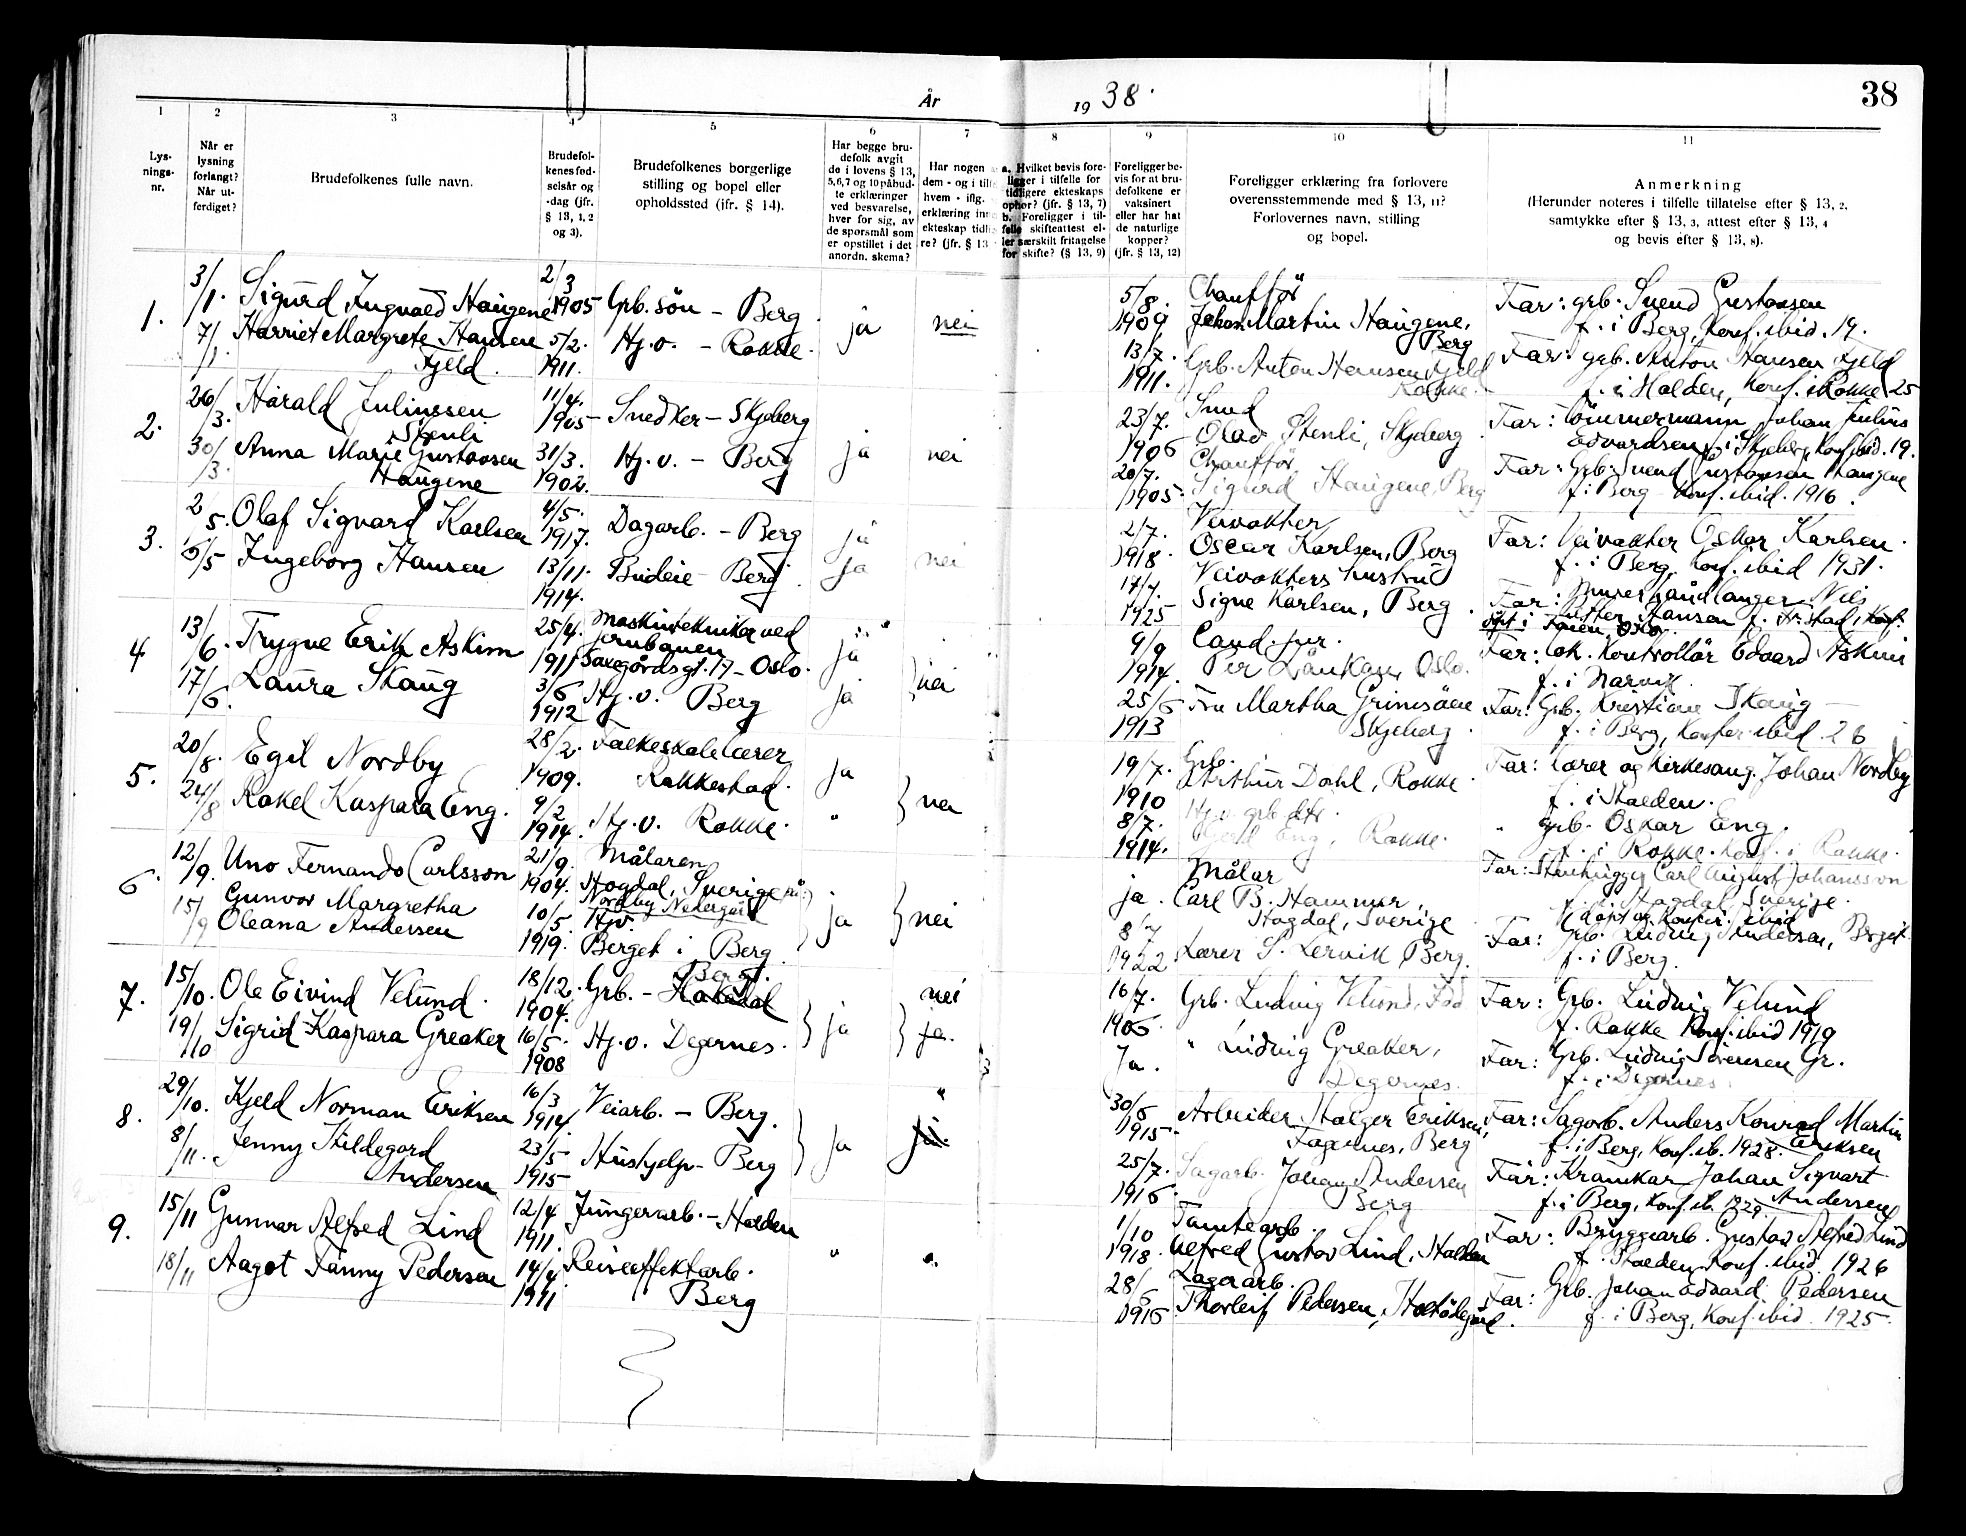 38
År 1938.
1
2
3
4
5
6
7
8
9
10
11
Lys-
nings-
nr.
Når er
lysning
forlangt?
Når ut-
ferdiget?
Brudefolkenes fulle navn.
Brudefol-
kenes fød-
selsår og
-dag (jfr.
§ 13, 1, 2
og 3).
Brudefolkenes borgerlige
stilling og bopel eller
opholdssted (jfr. § 14).
Har begge bru-
defolk avgit
de i lovens § 13,
5, 6, 7 og 10 påbud-
te erklæringer
ved besvarelse,
hver for sig, av
de spørsmål som
er opstillet i det
anordn. skema?
Har nogen
dem - og i tilf
hvem - iflg.
erklæring inn
ekteskap tidli
re? (jfr. § 13
a. Hvilket bevis fore-
ligger i tilfelle for
tidligere ekteskaps
ophør? (jfr. § 13, 7)
b. Foreligger i til-
felle skifteattest el-
ler særskilt fritagelse
for skifte? (§ 13, 9)
Foreligger be-
vis for at bru-
defolkene er
vaksinert
eller har hat
de naturlige
kopper?
(jfr. § 13, 12)
Foreligger erklæring fra forlovere
overensstemmende med § 13, 11?
Forlovernes navn, stilling
og bopel.
Anmerkning
(Herunder noteres i tilfelle tillatelse efter § 13, 2,
samtykke efter § 13, 3, attest efter § 13, 4
og bevis efter § 13, 8).
1.
3/1.
Sigurd Ingvald Haugene
2/3 1905
Grb. sön - Berg
ja
nei
5/8. 1909
Chaufför
Johan Martin Haugene,
Berg
Far: grb. Svend Gustavsen
f. i Berg, Konf. ibid. 19.
7/1.
Harriet Margrete Hansen
Fjeld.
5/2. 1911.
Hj.v. - Rokke.
13/7. 1911.
Grb. Anton Hansen Fjeld
Rokke.
Far: grb. Anton Hansen Fjeld
f. i Halden, Konf. i Rokke 25
2.
26/3.
Harald Juliussen
Stenli
11/4. 1905
Snedker - Skjeberg
ja
nei
23/7. 1906
Smed
Olav Stenli, Skjeberg
Far: Tömmermann Johan Julius
Edvardsen, f. i Skjeberg, Konf. ibid. 19.
30/3.
Anna Marie Gustavsen
Haugene
31/3. 1902.
Hj.v. - Berg
20/7. 1905.
Chaufför
Sigurd Haugene, Berg
Far: Grb. Svend Gustavsen Haugene
f. i Berg Konf. ibid. 1916.
3.
2/5.
Olaf Sigvard Karlsen
4/5. 1917.
Dagarb. - Berg
ja
2/7. 1918.
Veivokter
Oscar Karlsen, Berg
Far: Veivokter Oskar Karlsen.
f. i Berg, Konf. ibid 1931.
6/5
Ingeborg Hansen
13/11. 1914.
Budeie - Berg
ja
nei
1925
Veivokters hustru
Signe Karlsen, Berg.
Far: Murerhåndlanger Nils
Hansen
4
13/6.
Trygve Erik Askim
25/4. 1911
Maskintekniker ved
jernbanen
Saxegårdsgt. 17 - Oslo.
ja
nei
9/9 1914.
Cand. jur.
Oslo.
Kontrollör Edvard Askim
f. i Narvik
17/6.
Laura Skaug
3/6 1912
Hj.v. Berg
ja
25/6 1913
Fru Martha Grimsöen
Skjeberg.
Far: Grb. Kristian Skaug
f. i Berg, Konfir. ibid. 26
5.
20/8.
Egil Nordby
28/2. 1909.
Folkeskolelærer
Rakkestad.
ja
nei
19/7. 1910
Grb.
Arthur Dahl, Rokke.
Far: Lærer og Kirkesang. Johan Nordby
f. i Halden.
24/8
Rakel Kaspara Eng.
9/2 1914.
Hj.v. Rokke.
"
8/7. 1914.
Hj.v. grb. dtr.
Eng, Rokke.
" grb. Oskar Eng.
f. i Rokke. Konf. i Rokke.
6.
12/9.
Uno Fernando Carlsson
21/9. 1904.
Målaren
Hogdal, Sverige
Nordby Nedergård
ja
nei
ja.
Målar
Carl B. Hammer,
Hogdal, Sverige
Far: Stenhugger Carl August Johansson
f. i Hogdal, Sverige.
15/9
Gunvor Margretha
Oleana Andersen
10/5. 1919.
Hjv.
Berget i Berg
8/7 1922
Lærer S. Lervik Berg.
Far: Grb. Ludvig Andersen, Berget
f. i Berg.
7.
15/10.
Ole Eivind Velund.
18/12. 1904.
Berg.
Grb. -
ja
nei
16/7. 1906.
Grb. Ludvig Velund,
Far: Grb. Ludvig Velund
f. Rokke Konf. ibid 1919
19/10
Sigrid Kaspara Greaker
16/5. 1908
Hj.v. Degernes.
ja.
Ja.
" Ludvig Greaker,
Degernes.
Far: Grb. Ludvig Sörensen Gr.
f. i Degernes
8.
29/10.
Kjeld Norman Eriksen
16/3 1914.
Veiarb. - Berg.
ja
"
30/6 1915
Arbeider Holger Eriksen,
Fagernes, Berg
Far: Sagarb. Anders Konrad Martin
Eriksen
f. i Berg, Konf. ib. 1928.
8/11.
Jenny Hildegard
Andersen
23/5 1915
Hushjelp - Berg
25/7. 1916.
Sagarb. Johan Andersen
Berg
Far: Krankar Johan Sigvart
Andersen
f. i Berg, Konf. ib. 1929.
9.
15/11
Gunnar Alfred Lind
12/4 1911.
- Halden
"
"
1/10 1918.
Tomtearb.
Alfred Gustav Lind, Halden
Far: Bryggearb. Gustav Alfred Lind
f. Halden Konf. ibid. 1926
18/11
Aagot Fanny Pedersen
14/4 1911
Reiseeffektarb.
Berg
28/6 1916
Lagerarb.
Thorleif Pedersen,
Far: Grb. Johan Edvard Pedersen
f. i Berg, Konf. ibid. 1925.